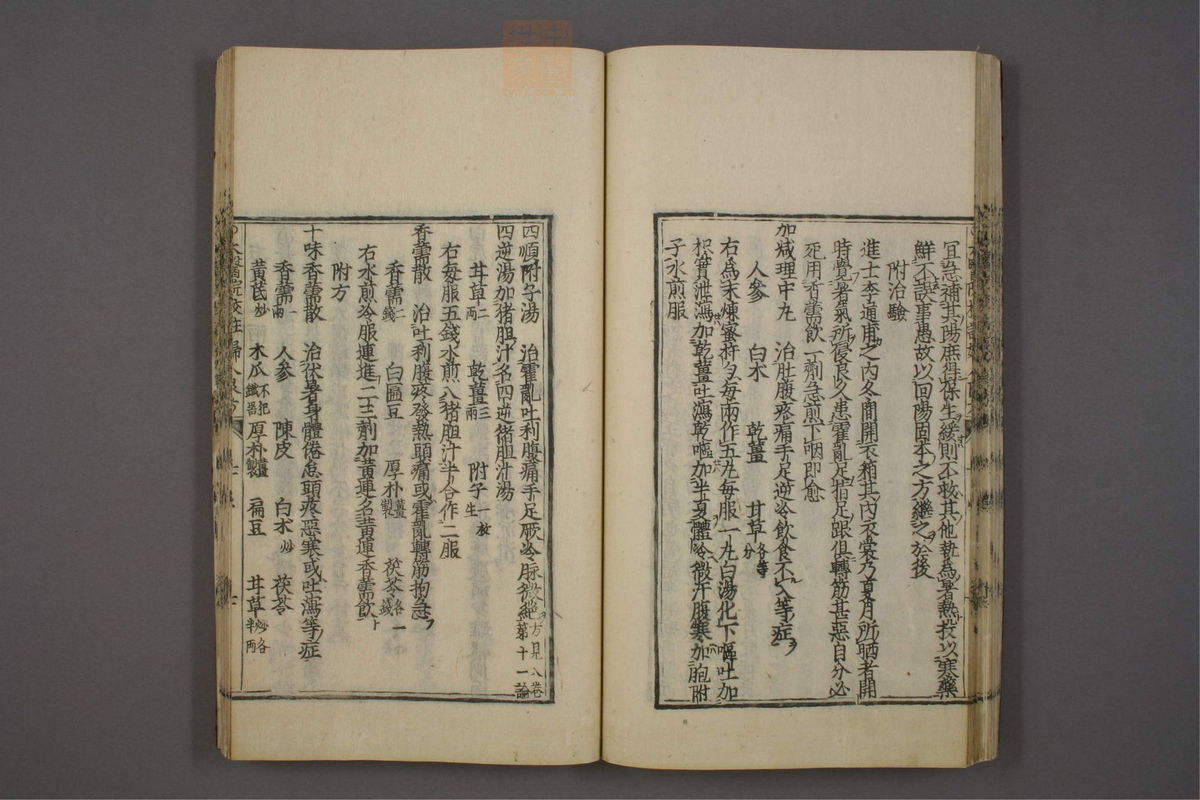 宜急補其陽庶得保生緩則不救其他執爲暑熱投以寒藥
鮮不誤事愚故以回陽固本之方繼之於後
附治驗
進士李通甫之內冬間開衣箱其內衣裳乃夏月所晒者開
時覺暑氣所侵良久患霍亂足指足跟俱轉筋甚惡自分必
死用香薷飲一劑急煎下咽即愈
加减理中丸　治肚腹疼痛手足逆冷飲食不入等症
人參　白朮　乾薑　甘草各等分
右爲末煉蜜搗勻每兩作五丸每服一丸白湯化下嘔吐加
枳實泄瀉加乾薑吐瀉乾嘔加半夏體冷微汗腹寒加胞附
子水煎服
四順附子湯　治霍亂吐利腹痛手足厥冷脉微絶方見八卷第十一論
四逆湯加猪胆汁名四逆猪胆汁湯
甘草二兩　乾薑三兩　附子一枚生
右每服五錢水煎入猪胆汁半合作二服
香薷散　治吐利腹疼發熱頭痛或霍亂轉筋拘急
香薷二錢　白匾豆　厚朴薑製　茯苓各一錢
右水煎冷服連進二三劑加黄連名黄連香薷飲
附方
十味香薷散　治伏暑身體倦怠頭疼惡寒或吐瀉等症
香薷一兩　人參　陳皮　白朮炒　茯苓
黄芪炒　木瓜不犯鐵器　厚朴薑製　扁豆　甘草炒各半兩